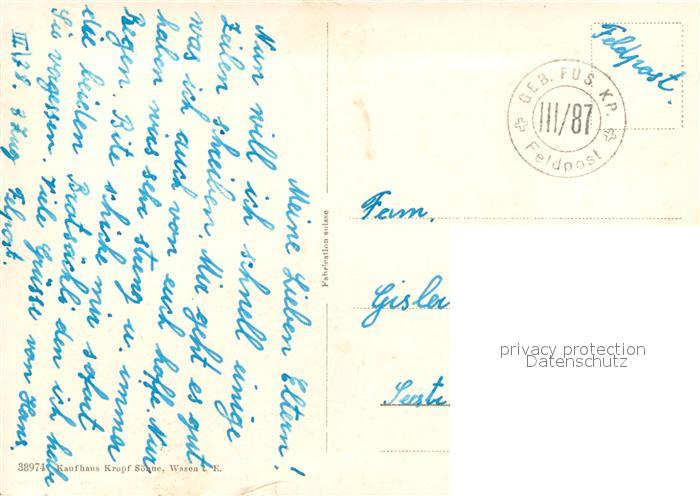 Meine Lieben Eltern!
Nun will ich schnell einige
Zeilen schreiben. Mir geht es gut
was ich auch von euch hoffe. Nur
haben wirs sehr streng u. immer
Regen. Bite schicke mir sofort
die beiden Brotsäckli den ich habe
Sie vergessen. viele Grüsse von Hans.
III/78. 3 Zug Felpost.
38974 Kaufhaus Kropf Söhne, Wasen i. E.
Fabrication suisse
Feldpost.
GEB. FÜS. KP.
III/87
Feldpost
Fam.
Gisler
privacy protection
Datenschutz